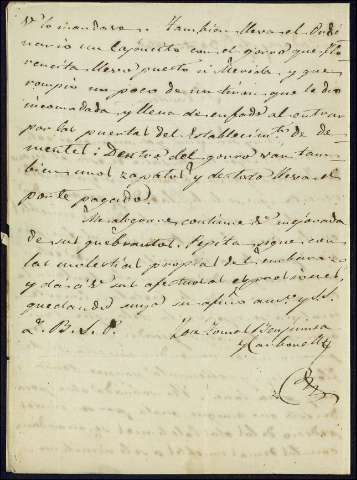 V. lo mandara. Tambien lleva el Ordi
nario un cajoncito con el gorro que Flo
rencita llevo puesto á Merida, y que
rompió un poco de un tiron que le dio
incomodada y llena de enfado al entrar
por las puertas del Establecimto. de de
mentes: Dentro del gorro van tam
bien unos zapatos y de todo lleva el
porte pagado.
Me alegrare continue V. mejorada
de sus quebrantos. Pepita sigue con
las molestias propias del embarazo
y da á V. sus afectuosas espresiones,
quedando suyo su afmo. amo. y S.S.
Q. B. S. P.
José Tomás Benjumea
y Carbonell